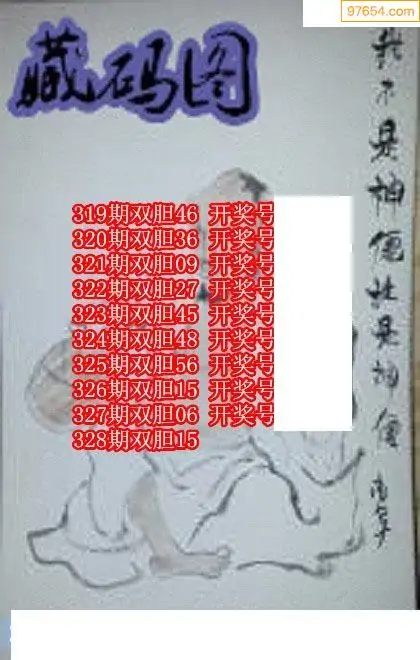 97654.com
藏码图
319期双胆46 开奖号
320期双胆36 开奖号
321期双胆09 开奖号
322期双胆27 开奖号
323期双胆45 开奖号
324期双胆48 开奖号
325期双胆56 开奖号
326期双胆15 开奖号
327期双胆06 开奖号
328期双胆15
我不是神仙谁是神仙